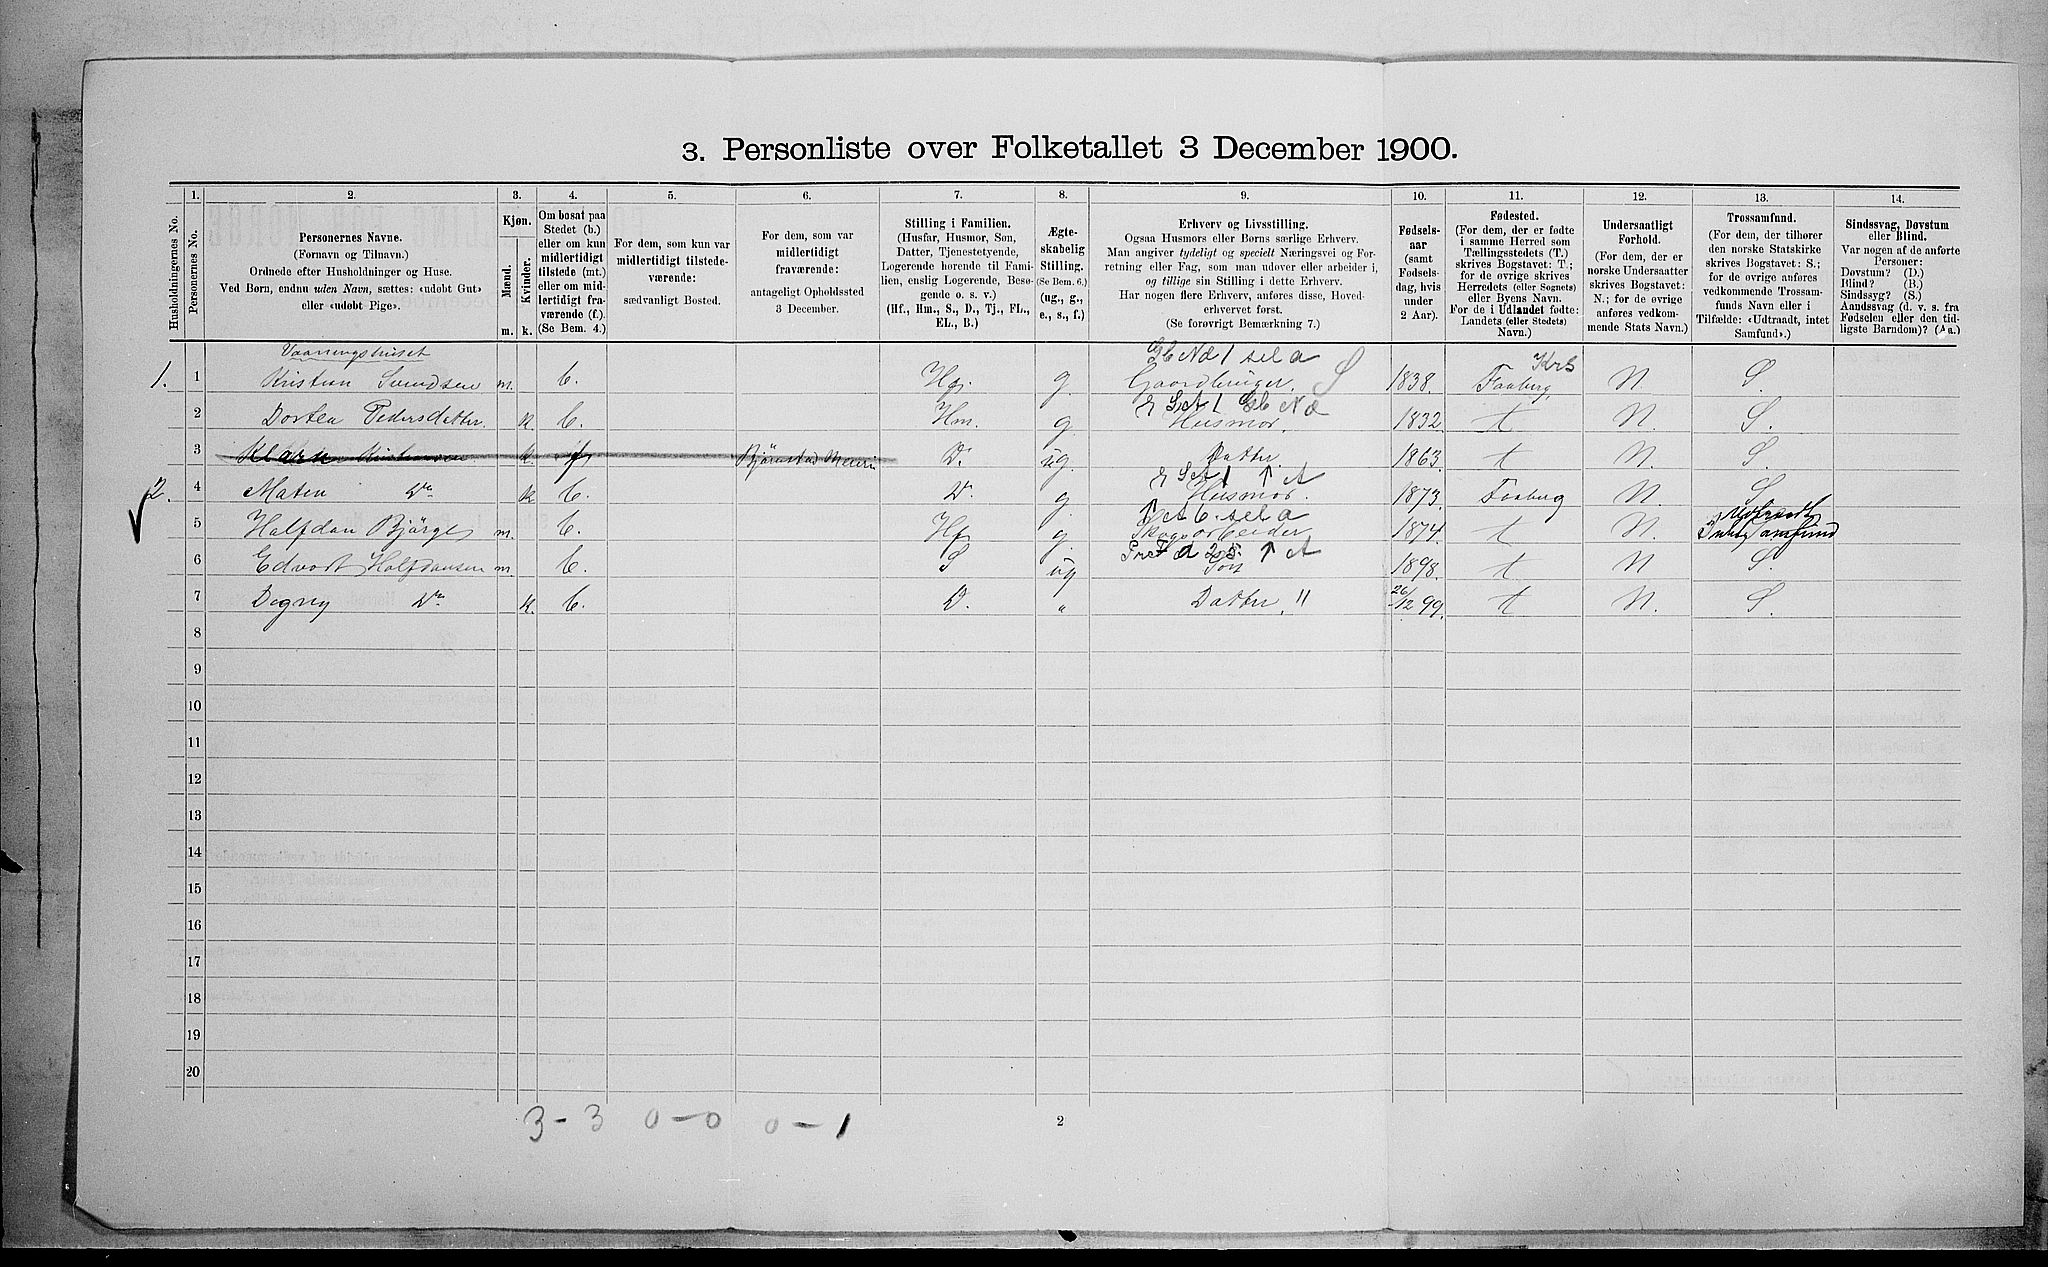 3. Personliste over Folketallet 3 December 1900.
1. 2. 3. 4. 5. 6. 7. 8. 9. 10. 11. 12. 13. 14.
Husholdningernes No.
Personernes No.
Personernes Navne.
(Fornavn og Tilnavn.)
Ordnede efter Husholdninger og Huse.
Ved Børn, endnu uden Navn, sættes: «udøbt Gut»
eller «udøbt Pige».
Kjøn.
Mænd. Kvinder.
m. k.
Om bosat paa
Stedet (b.)
eller om kun
midlertidigt
tilstede (mt.)
eller om mid-
lertidigt fra-
værende (f.).
(Se Bem. 4.)
For dem, som kun var
midlertidigt tilstede-
værende:
sædvanligt Bosted.
For dem, som var
midlertidigt
fraværende:
antageligt Opholdssted
3 December.
Stilling i Familien.
(Husfar, Husmor, Søn,
Datter, Tjenestetyende,
Logerende hørende til Fami-
lien, enslig Logerende, Besø-
gende o. s. v.)
(Hf., Hm., S., D., Tj., FL.,
EL., B.)
Ægte-
skabelig
Stilling.
(Se Bem. 6.)
(ug., g.,
e., s., f.)
Erhverv og Livsstilling.
Ogsaa Husmors eller Børns særlige Erhverv.
Man angiver tydeligt og specielt Næringsvei og For-
retning eller Fag, som man udøver eller arbeider i,
og tillige sin Stilling i dette Erhverv.
Har nogen flere Erhverv, anføres disse, Hoved-
erhvervet først.
(Se forøvrigt Bemærkning 7.)
Fødsels-
aar
(samt
Fødsels-
dag, hvis
under
2 Aar).
Fødested.
(For dem, der er fødte
i samme Herred som
Tællingsstedets (T.)
skrives Bogstavet: T.;
for de øvrige skrives
Herredets (eller Sognets)
eller Byens Navn.
For de i Udlandet fødte:
Landets (eller Stedets)
Navn.)
Undersaatligt
Forhold.
(For dem, der er
norske Undersaatter
skrives Bogstavet:
N.; for de øvrige
anføres vedkom-
mende Stats Navn.)
Trossamfund.
(For dem, der tilhører
den norske Statskirke
skrives Bogstavet: S.;
for de øvrige anføres
vedkommende Trossam-
funds Navn eller i
Tilfælde: «Udtraadt, intet
Samfund».)
Sindssvag, Døvstum
eller Blind.
Var nogen af de anførte
Personer:
Døvstum? (D.)
Blind? (B.)
Sindssyg? (S.)
Aandssvag (d. v. s. fra
Fødselen eller den tid-
ligste Barndom)? (Aa.)
Vaaningshuset
1. 1 Kristian Svendsen m. b. Hf. g. Gaardbruger. S 1838. Faaberg, Krs N. S.
2 Dortea Pedersdatter. k. b. Hm. g. Husmor. 1832. t N. S.
3 Klara Kristiansen k. f D. ug. Datter. 1863. t N. S.
2. 4 Maten Do k b. D. g. Husmor. 1873. Faaberg N. S
5 Halfdan Bjørge m. b. Hf g. Skogsarbeider 1874. t N. Udtraadt
Intet Samfund
6 Edvart Halfdansen m. b. S ug Søn 1898. t N S.
7 Dagny Do k. b. D. " Datter. " 26/12 99. t N. S.
8
9
10
11
12
13
14
15
16
17
18
19
20
3-3 0-0 0-1
2